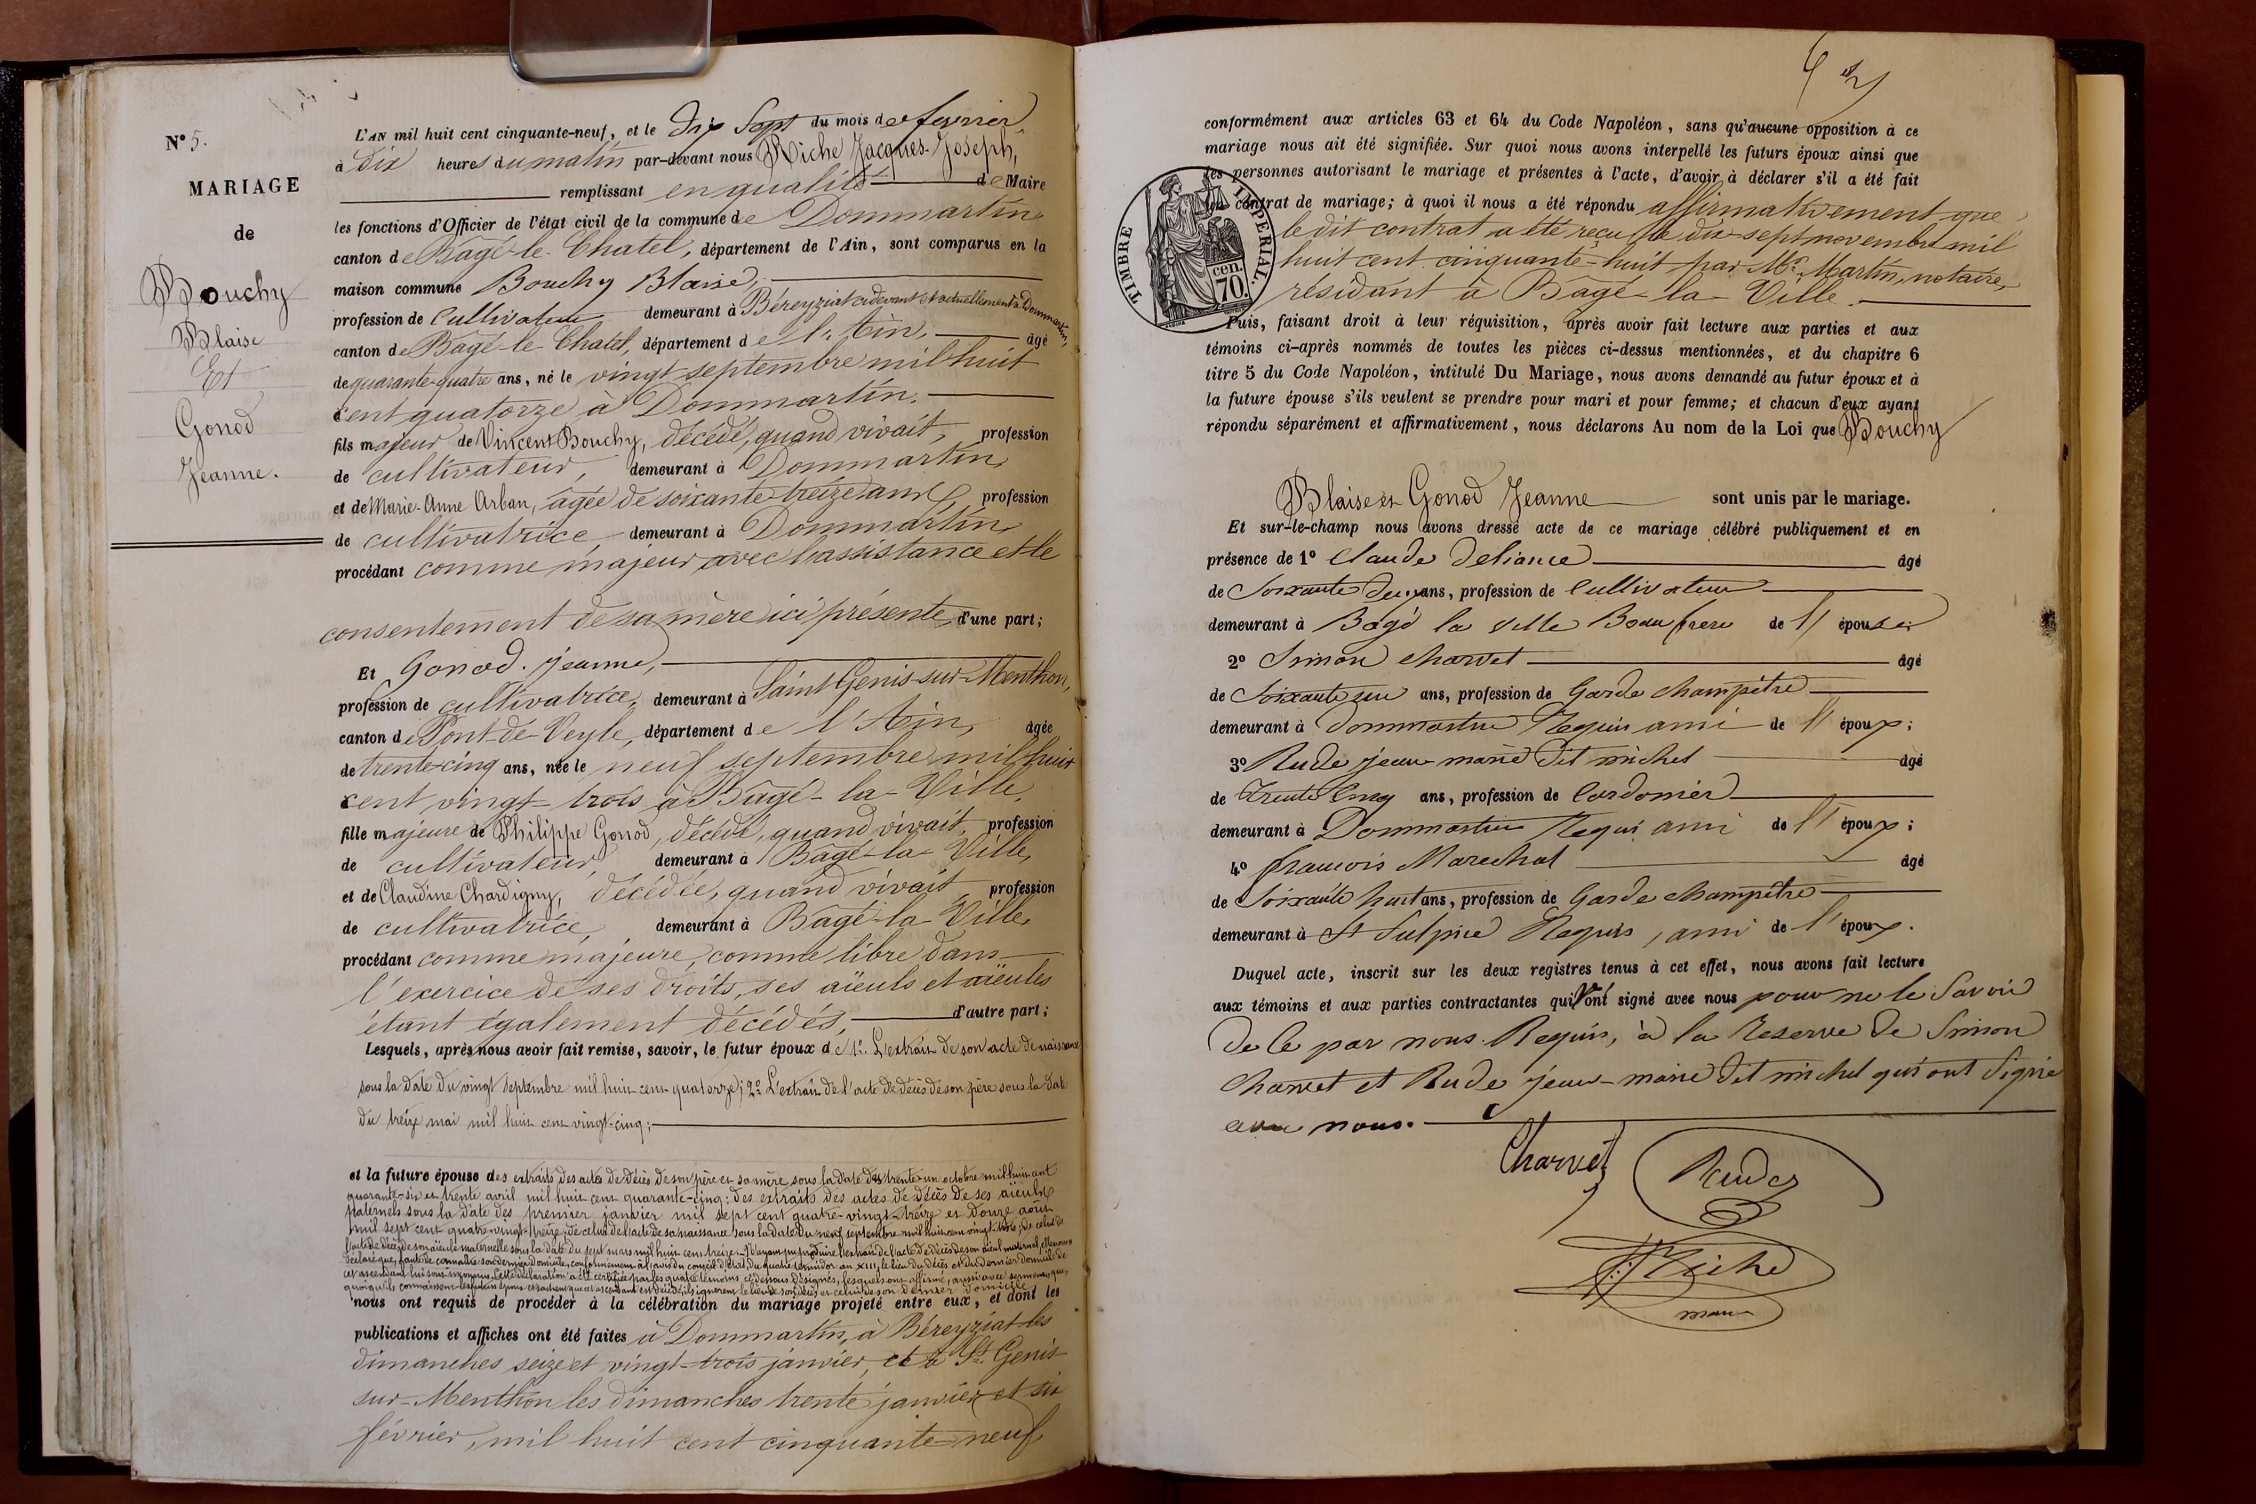 N° 5.
MARIAGE
de
Bouchy
Blaise
Et
Gonod
Jeanne.
L'AN mil huit cent cinquante-neuf, et le dix Sept du mois de février
à dix heures du matin par-devant nous Riche Jacques-Joseph,
remplissant en qualité de Maire
les fonctions d'Officier de l'état civil de la commune de Dommartin
canton de Bâgé-le-Chatel, département de l'Ain, sont comparus en la
maison commune Bouchy Blaise,
profession de cultivateur demeurant à Béreyziat ci devant et actuellement à Dommartin,
canton de Bâgé-le-Chatel, département de l'Ain, âgé
de quarante-quatre ans, né le vingt septembre mil huit
cent quatorze à Dommartin.
fils majeur de Vincent Bouchy, décédé, quand vivait, profession
de cultivateur, demeurant à Dommartin,
et de Marie-Anne Arban, âgée de soixante treize ans, profession
de cultivatrice, demeurant à Dommartin,
procédant comme majeur avec l'assistance et le
consentement de sa mère ici présente, d'une part;
Et Gonod Jeanne,
profession de cultivatrice, demeurant à Saint Genis-sur-Menthon,
canton de Pont-de-Veyle, département de l'Ain, âgée
de trente-cinq ans, née le neuf septembre mil huit
cent vingt-trois à Bâgé-la-Ville,
fille majeure de Philippe Gonod, décédé, quand vivait, profession
de cultivateur, demeurant à Bâgé-la-Ville,
et de Claudine Chardigny, décédée, quand vivait, profession
de cultivatrice, demeurant à Bâgé-la-Ville,
procédant comme majeure, comme libre dans
l'exercice de ses droits, ses aïeuls et aïeules
étant également décédés, d'autre part;
Lesquels, après nous avoir fait remise, savoir, le futur époux de 1° L'extrait de son acte de naissance
sous la date du vingt septembre mil huit cent quatorze; 2° L'extrait de l'acte de décès de son père sous la date
du treize mai mil huit cent vingt-cinq;
et la future épouse des extraits des actes de décès de son père et sa mère sous la date des trente-un octobre mil huit cent
quarante-six et trente avril mil huit cent quarante-cinq; des extraits des actes de décès de ses aïeuls
paternels sous la date des premier janvier mil sept cent quatre-vingt-treize et douze août
mil sept cent quatre-vingt-treize; de celui de l'acte de sa naissance sous la date du neuf septembre mil huit cent vingt-trois; de celui de
l'acte de décès de son aïeule maternelle sous la date du sept mars mil huit cent treize. N'ayant pu produire l'extrait de l'acte de décès de son aïeul maternel, elle nous a
déclaré que, faute de connaître son dernier domicile, conformément à l'avis du conseil d'état du quatre termidor an XIII, le lieu du décès et du dernier domicile de
cet ascendant lui sont inconnus. Cette déclaration a été certifiée par les quatre témoins ci-dessous désignés, lesquels ont affirmé, aussi avec serment, que,
quoiqu'ils connaissent les futurs époux et sachent que cet ascendant est décédé, ils ignorent le lieu de son décès et celui de son dernier domicile
nous ont requis de procéder à la célébration du mariage projeté entre eux, et dont les
publications et affiches ont été faites à Dommartin, à Béreyziat les
dimanches seize et vingt-trois janvier, et à St. Genis
sur-Menthon les dimanches trente janvier et six
février, mil huit cent cinquante-neuf
conformément aux articles 63 et 64 du Code Napoléon, sans qu'aucune opposition à ce
mariage nous ait été signifiée. Sur quoi nous avons interpellé les futurs époux ainsi que
les personnes autorisant le mariage et présentes à l'acte, d'avoir à déclarer s'il a été fait
un contrat de mariage; à quoi il nous a été répondu affirmativement que
le dit contrat a été reçu le dix-sept novembre mil
huit cent cinquante-huit par Me. Martin, notaire,
résidant à Bâgé-la-Ville.
TIMBRE IMPERIAL.
cen.
70.
Puis, faisant droit à leur réquisition, après avoir fait lecture aux parties et aux
témoins ci-après nommés de toutes les pièces ci-dessus mentionnées, et du chapitre 6
titre 5 du Code Napoléon, intitulé Du Mariage, nous avons demandé au futur époux et à
la future épouse s'ils veulent se prendre pour mari et pour femme; et chacun d'eux ayant
répondu séparément et affirmativement, nous déclarons Au nom de la Loi que Bouchy
Blaise et Gonod Jeanne sont unis par le mariage.
Et sur-le-champ nous avons dressé acte de ce mariage célébré publiquement et en
présence de 1° Claude Deliance âgé
de Soixante deux ans, profession de Cultivateur
demeurant à Bâgé la Ville Beau frere de l' épouse;
2° Simon Charvet âgé
de Soixante un ans, profession de Garde champêtre
demeurant à Dommartin Requis ami de l' époux;
3° Rude jean-marie dit michel âgé
de Trente Cinq ans, profession de Cordonier
demeurant à Dommartin Requi ami de l' époux;
4° francois Marechal âgé
de Soixante huit ans, profession de Garde champêtre
demeurant à St Sulpice Requis, ami de l' époux.
Duquel acte, inscrit sur les deux registres tenus à cet effet, nous avons fait lecture
aux témoins et aux parties contractantes qui n'ont signé avec nous pour ne le Savoir
de ce par nous Requis, à la Reserve de Simon
Charvet et Rude jean-marie dit michel qui ont Signé
avec nous.
Charvet
Rude
Riche
maire